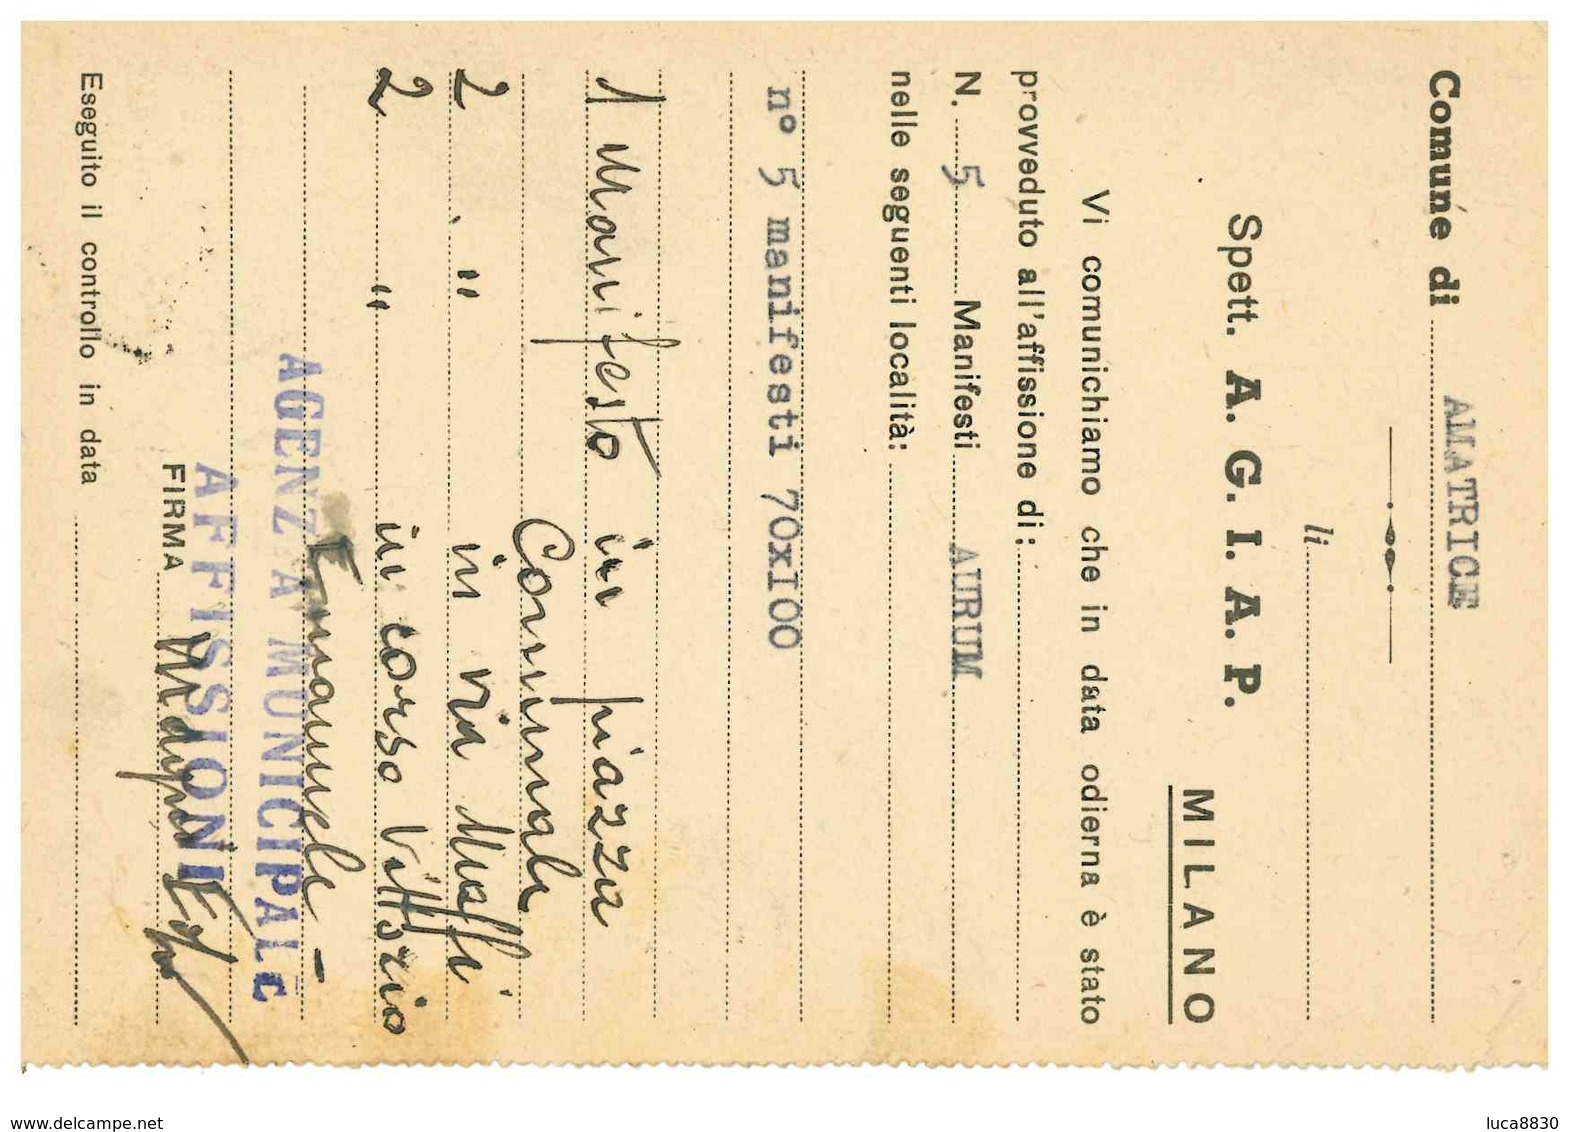 Comune di AMATRICE
li
Spett. A. G. I. A. P.
MILANO
Vi comunichiamo che in data odierna è stato
provveduto all'affissione di:
N. 5 Manifesti AURUM
nelle seguenti località:
n° 5 manifesti 70xI00
1 Manifesto in piazza
Comunale
2 " " in via
2 " in corso Vittorio
Emanuele -
AGENZIA MUNICIPALE
AFFISSIONI
FIRMA
Eseguito il controllo in data
www.delcampe.net
luca8830